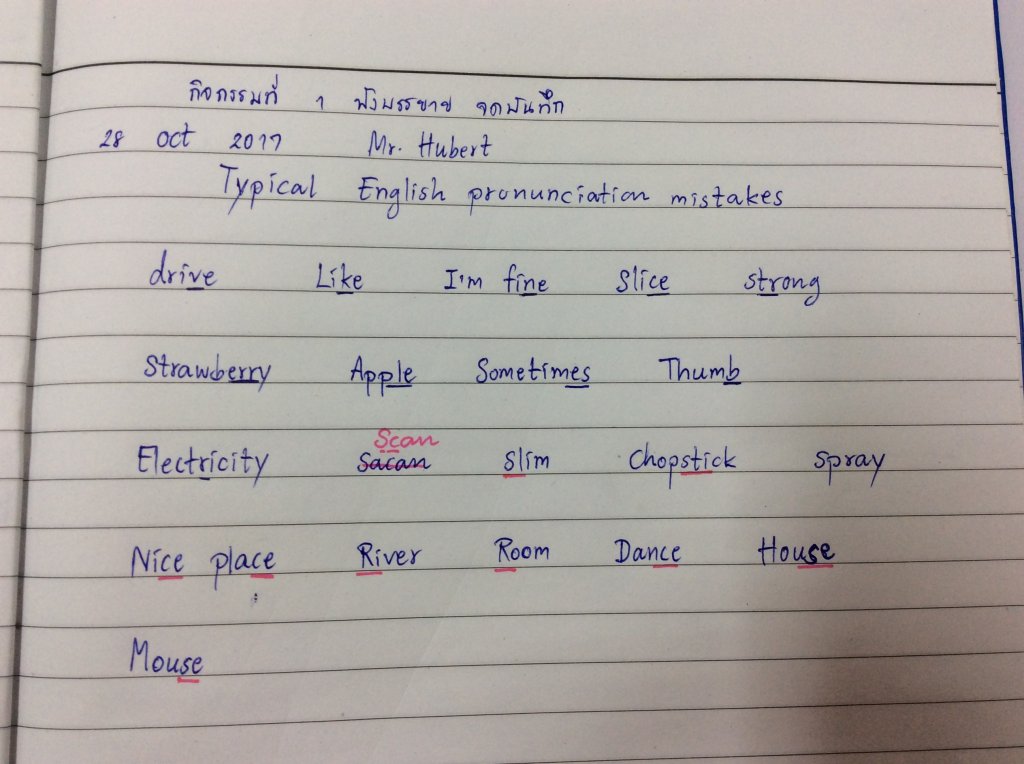 กิจกรรมที่ 1 ฟังบรรยาย จดบันทึก
28 Oct 2017 Mr. Hubert
Typical English pronunciation mistakes
drive Like I'm fine Slice strong
Strawberry Apple Sometimes Thumb
Scan
Electricity Sacan Slim Chopstick Spray
Nice place River Room Dance House
Mouse